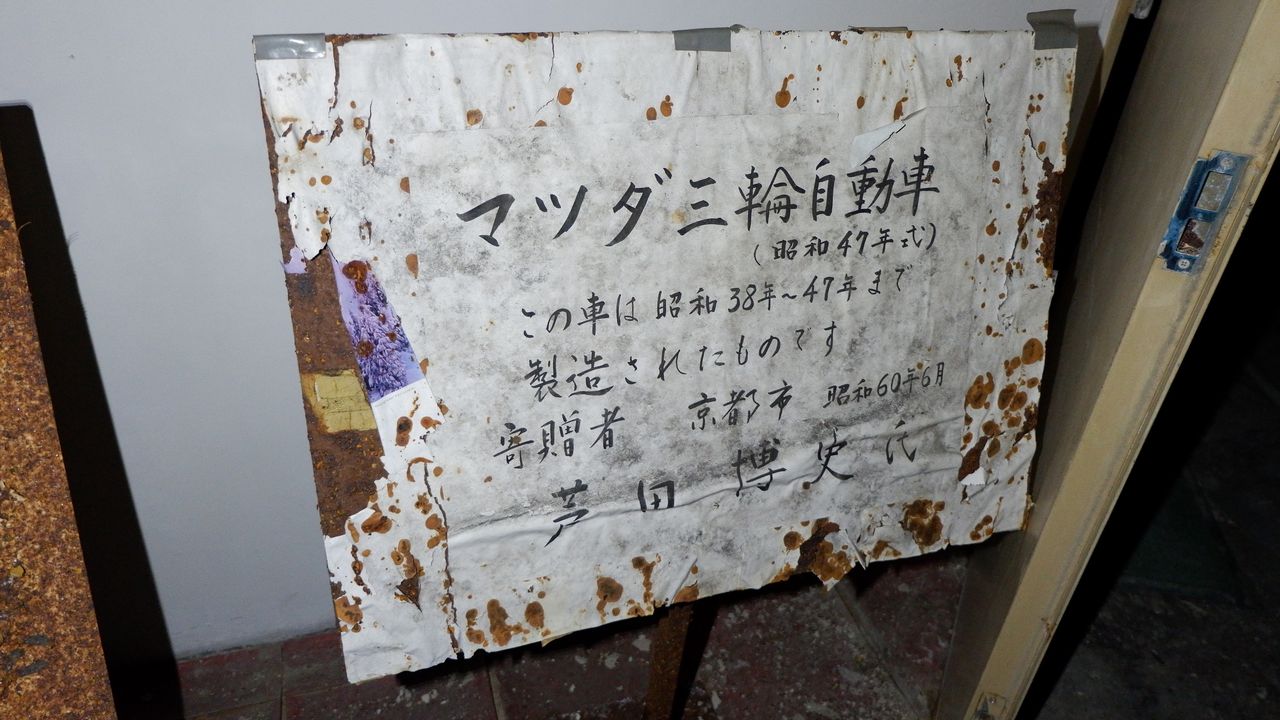 マツダ三輪自動車
(昭和47年式)
この車は昭和38年~47年まで
製造されたものです
寄贈者 京都市 昭和60年6月
芦田博史氏